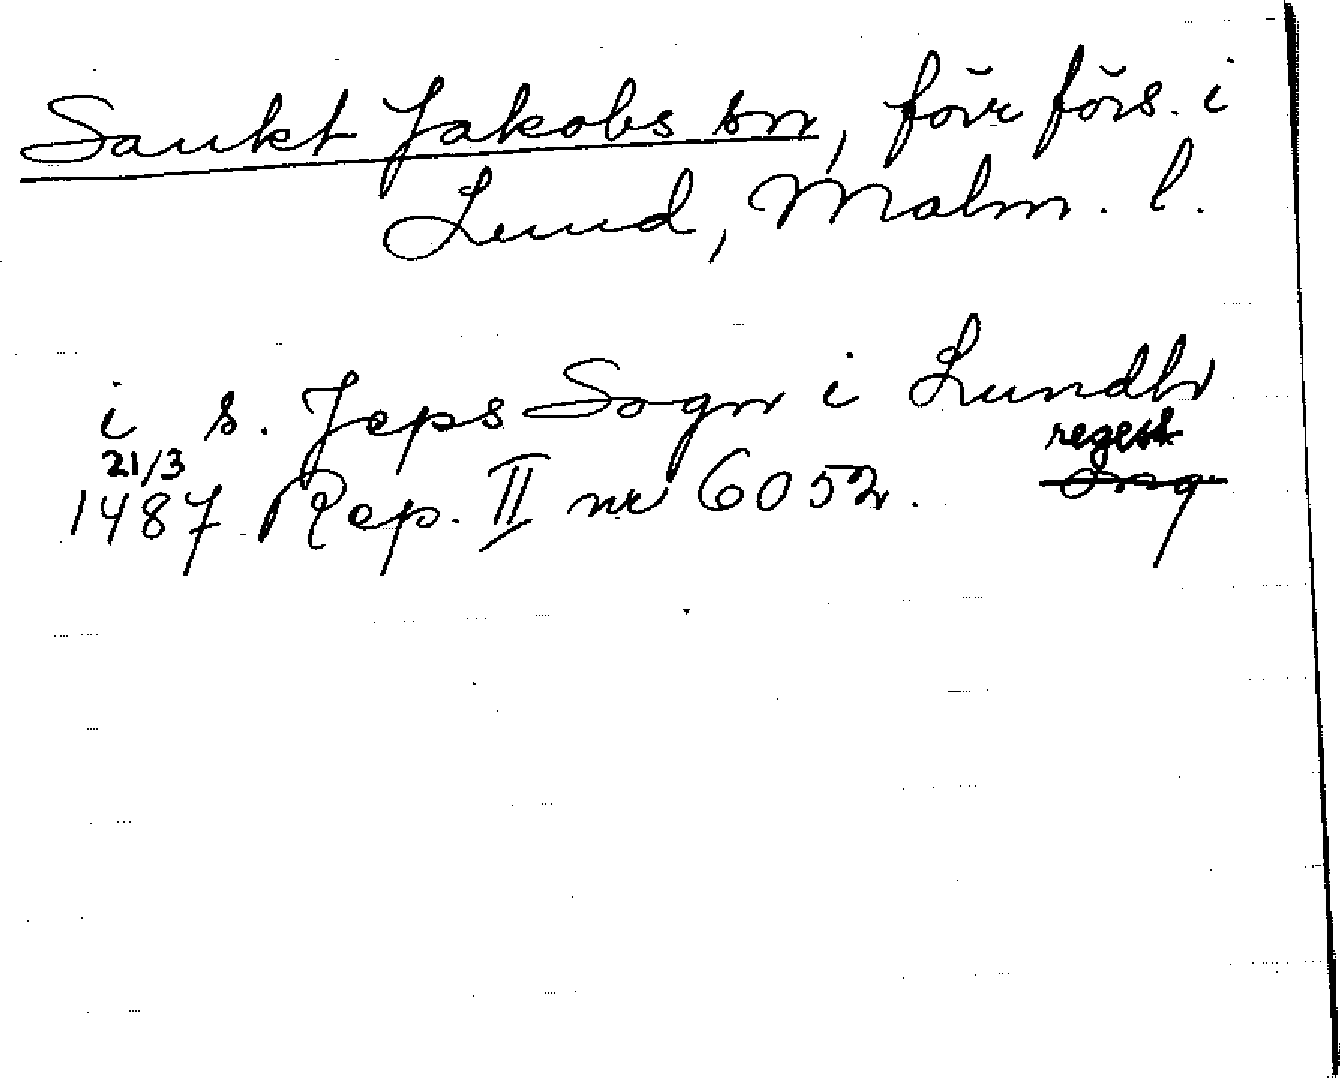 Sankt Jakobs sn, förr förs. i
Lund, Malm. l.
i s. Jeps Sogn i Lundh
regest
21/3
1487 Rep. II nr 6052.